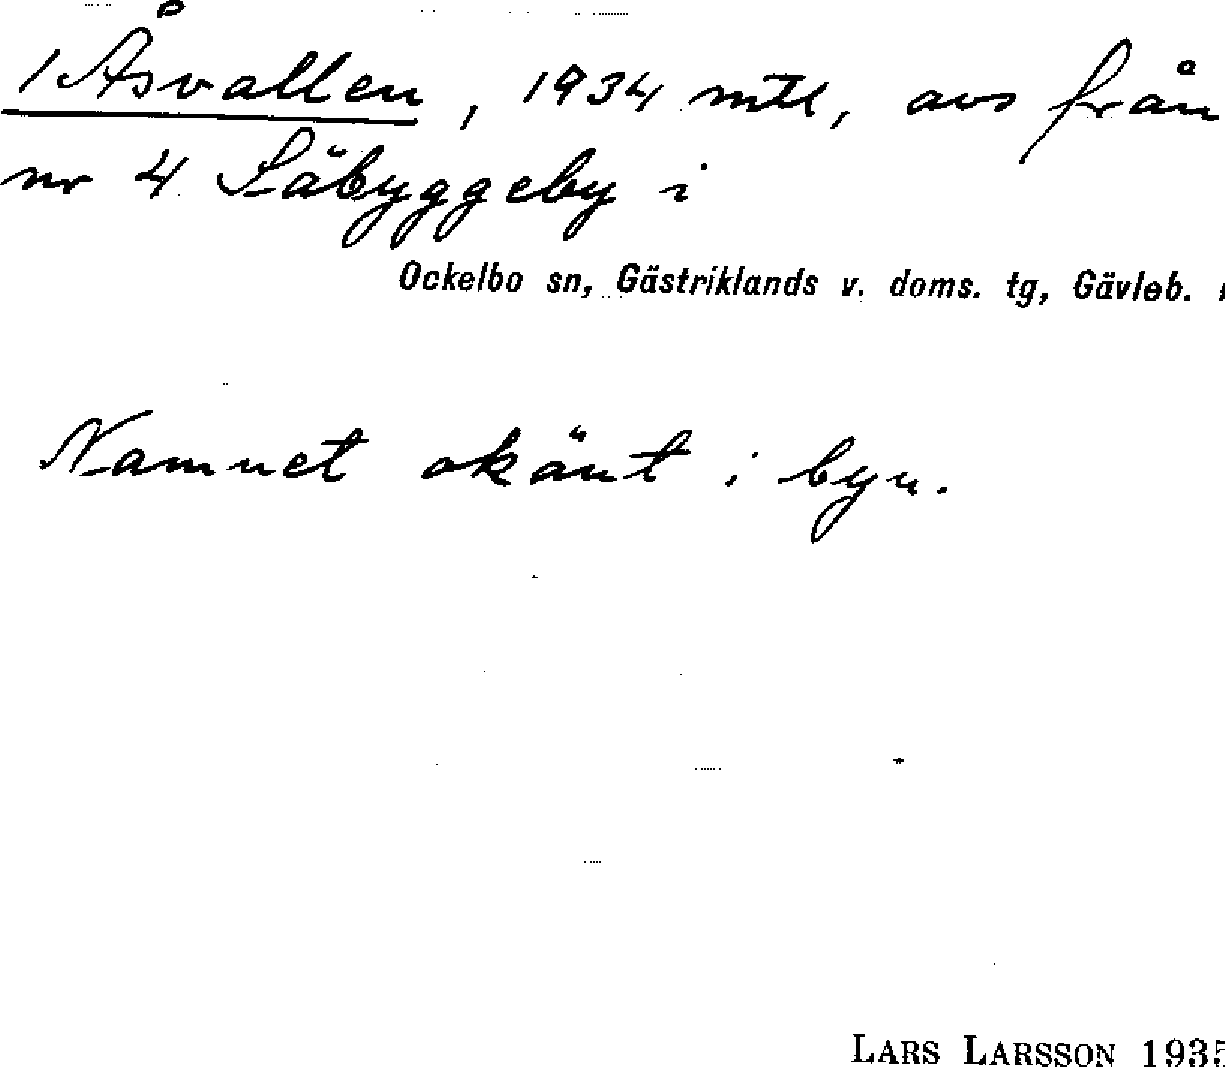 1 Åsvallen, 1934 mtl, avs från
nr 4 Säbyggeby i
Ockelbo sn, Gästriklands v. doms. tg, Gävleb.
Namnet okänt i byn.
LARS LARSSON 1935